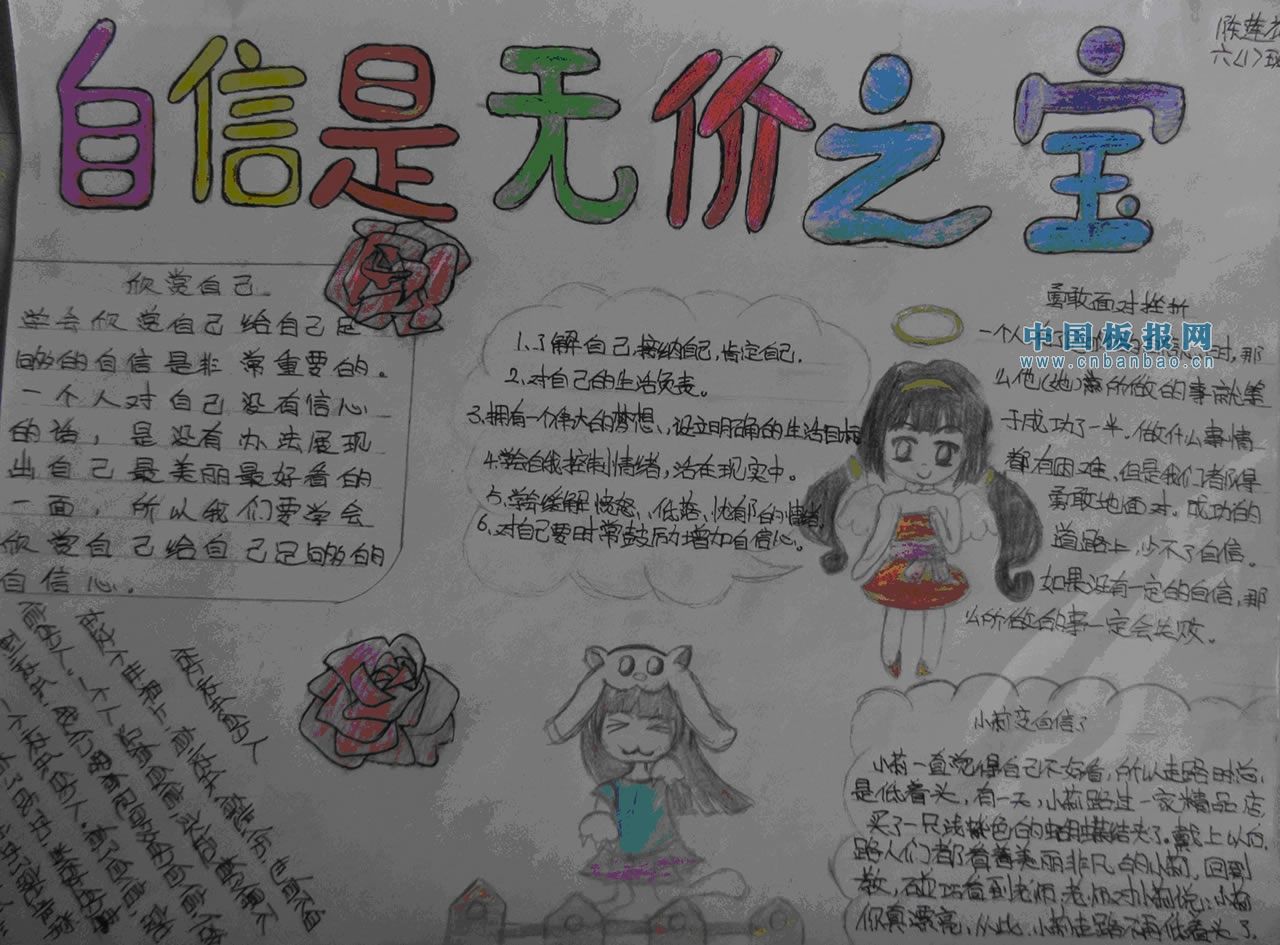 自信是无价之宝
六(1)班
欣赏自己
学会欣赏自己给自己足
够的自信是非常重要的。
一个人对自己没有信心
的话，是没有办法展现
出自己最美丽最好看的
一面，所以我们要学会
欣赏自己给自己足够的
自信心。
1、了解自己,接纳自己,肯定自己.
2、对自己的生活负责。
3、拥有一个伟大的梦想、,设立明确的生活目标
4.学会自我控制情绪，活在现实中。
5、学会缓解愤怒、低落、忧郁的情绪.
6、对自己要时常鼓励增加自信心。
勇敢面对挫折
一个人 时,那
么他(她)离所做的事就差
于成功了一半。做什么事情
都有困难，但是我们都得
勇敢地面对。成功的
道路上，少不了自信。
如果没有一定的自信，那
么所做的事一定会失败。
中国板报网
www.cnbanbao.cn
做快乐的人
在这个世界上，有快乐有悲伤，也有不自
信的人。一个人没有自信，永远都得不
到快乐，我们要有足够的自信，做
一个快乐的人。有了自信，就
有了成功，
小莉变自信了
小莉一直觉得自己不好看，所以走路时总
是低着头，有一天，小莉路过一家精品店
买了一只浅紫色的蝴蝶结夹子。戴上以后
路人们都看着美丽非凡的小莉，回到
教，碰巧看到老师，老师对小莉说：小莉
你真漂亮，从此，小莉走路不再低着头了.